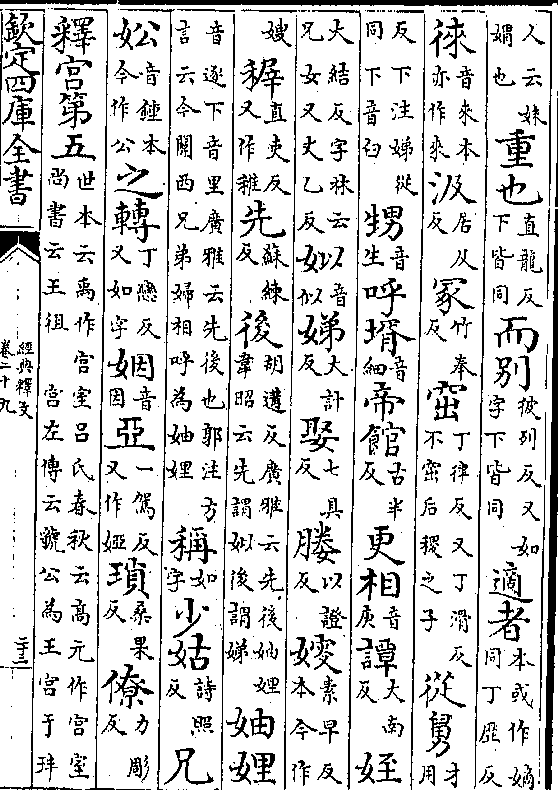 人云妹媦也重也直龍反下皆同而别彼列反又如字下皆同適者本或作嫡同丁歷反
徠音來本亦作來汲居从反冢竹奉反窋丁律反又丁滑反不窋后稷之子從舅才用
反下注娣從同下音臼甥音生呼壻音細帝館古半反更相音庚譚大南反姪
大結反字林云兄女又丈乙反姒音似娣大計反娶七具反媵以證反㛮素早反本今作
嫂穉直吏反又作稚先蘇練反後胡遘反廣雅云先後妯娌韋昭云先謂姒後謂娣妯娌
音逐下音里廣雅云先後也郭注方言云今關西兄弟婦相呼為妯娌稱如字少姑詩照反兄
妐音鍾本今作公之轉丁戀反又如字姻音因亞一駕反又作婭瑣桑果反僚力彫反
釋宫第五世本云禹作宫室吕氏春秋云高元作宫室尚書云王徂 宫左傳云虢公為王宫于玤
欽定四庫全書
經典釋文
卷二十九
二十三